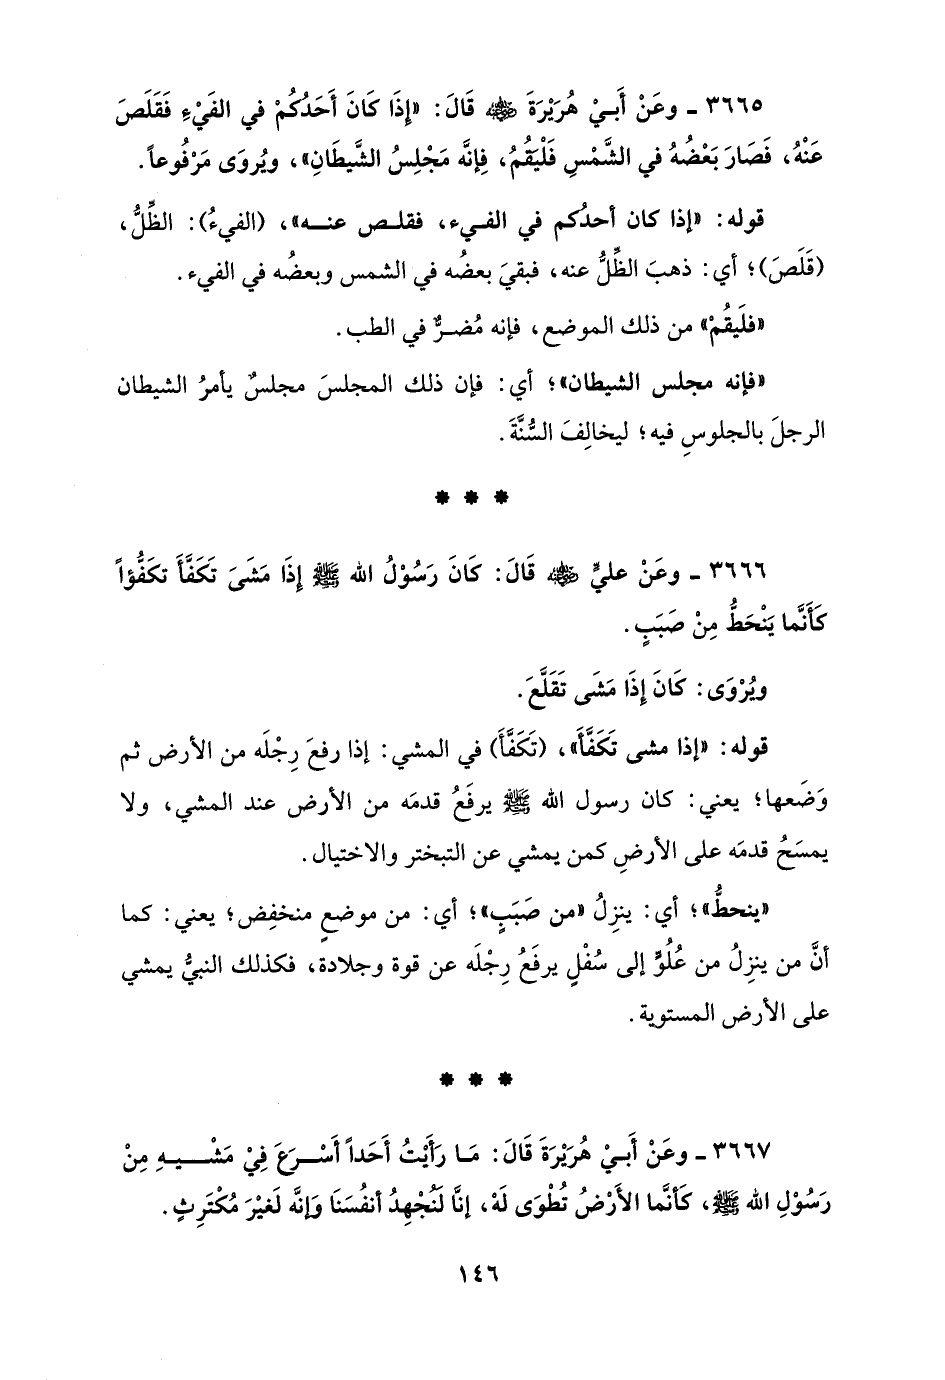 ٣٦٦٥ ـ وعَنْ أَبيْ هُرَيْرَةَ رضي الله عنه قَالَ: «إِذَا كَانَ أَحَدُكُمْ في الفَيْءِ فَقَلَصَ
عَنْهُ، فَصَارَ بَعْضُهُ في الشَّمْسِ فَلْيَقُمْ، فإنَّه مَجْلِسُ الشَّيطَانِ»، ويُروَى مَرْفُوعاً.
قوله: «إذا كان أحدُكم في الفيء، فقلص عنه»، (الفيءُ): الظِّلُّ،
(قَلَصَ)؛ أي: ذهبَ الظِّلُّ عنه، فبقيَ بعضُه في الشمس وبعضُه في الفيء.
«فلَيقُمْ» من ذلك الموضع، فإنه مُضرٌّ في الطب.
«فإنه مجلس الشيطان»؛ أي: فإن ذلك المجلسَ مجلسٌ يأمرُ الشيطان
الرجلَ بالجلوسِ فيه؛ ليخالِفَ السُّنَّةَ.
* * *
٣٦٦٦ ـ وعَنْ عليٍّ رضي الله عنه قَالَ: كَانَ رَسُوْلُ الله ﷺ إِذَا مَشَىَ تَكَفَّأَ تكَفُّؤاً
كَأَنَّما يَنْحَطُّ مِنْ صَبَبٍ.
ويُرْوَى: كَانَ إِذَا مَشَى تَقَلَّعَ.
قوله: «إذا مشى تَكَفَّأَ»، (تَكَفَّأَ) في المشي: إذا رفعَ رِجْلَه من الأرض ثم
وَضَعها؛ يعني: كان رسول الله ﷺ يرفَعُ قدمَه من الأرض عند المشي، ولا
يمسَحُ قدمَه على الأرضِ كمن يمشي عن التبختر والاختيال.
«ينحطُّ»؛ أي: ينزِلُ «من صَبَبٍ»؛ أي: من موضعٍ منخفِض؛ يعني: كما
أنَّ من ينزِلُ من عُلُوٍّ إلى سُفْلٍ يرفَعُ رِجْلَه عن قوة وجلادة، فكذلك النبيُّ يمشي
على الأرض المستوية.
* * *
٣٦٦٧ ـ وعَنْ أَبيْ هُرَيْرَةَ قَالَ: مَا رَأَيْتُ أَحَداً أَسْرَعَ فِيْ مَشْيِهِ مِنْ
رَسُوْلِ الله ﷺ، كَأَنَّما الأَرْضُ تُطْوَى لَهْ، إنَّا لَنُجْهِدُ أنفُسَنَا وَإنَّه لَغيْرَ مُكْتَرِثٍ.
١٤٦